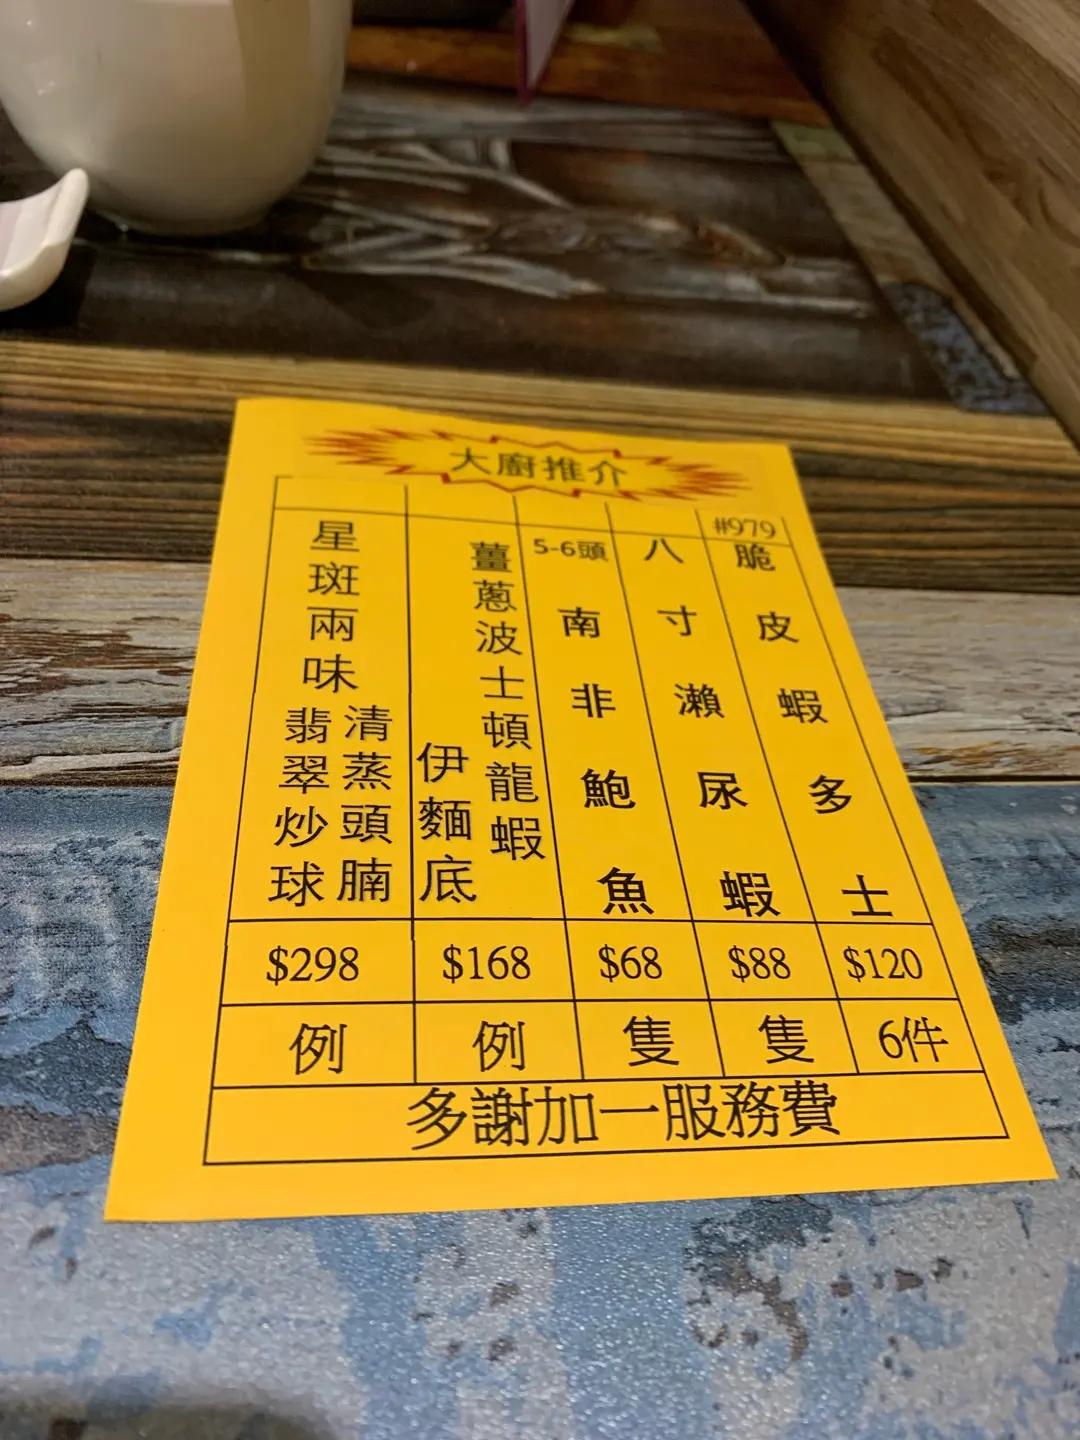 大廚推介
#979
脆皮蝦多士
$120
6件
八寸瀨尿蝦
$88
隻
5-6頭
南非鮑魚
$68
隻
薑蔥波士頓龍蝦
伊麵底
$168
例
星斑兩味
清蒸頭腩
翡翠炒球
$298
例
多謝加一服務費